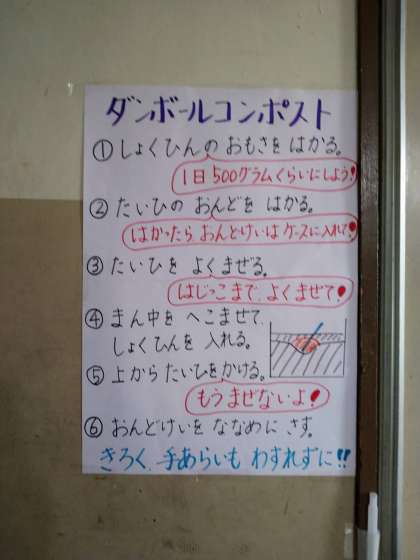 ダンボールコンポスト
①しょくひんの おもさを はかる。
1日500グラムくらいにしよう!
②たいひの おんどを はかる。
はかったら おんどけいは ケースに入れて!
③たいひを よくまぜる。
はじっこまで よくまぜて!
④まん中を へこませて
しょくひんを 入れる。
⑤上から たいひをかける。
もう まぜないよ!
⑥おんどけいを ななめに さす。
きろく 手あらいも わすれずに!!